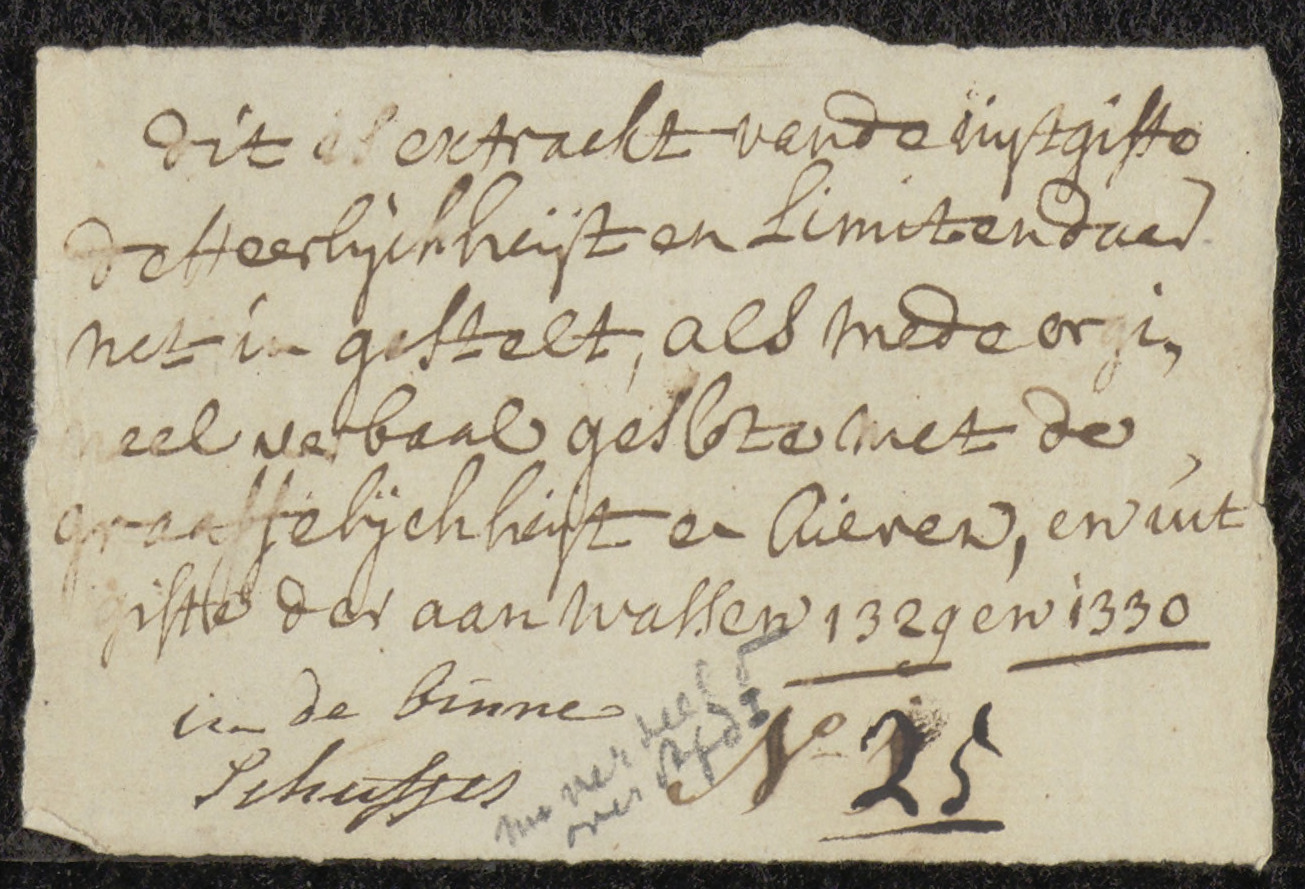 dit is extrackt van de uijtgifte
de Heerlijckheijt en Limiten daer
net in gestelt, als mede orgi,
neel verbaal geslote met de
graaffelijckheijt en Rieren, en uut
gifte der aanwassen 1329 en 1330
in de binne
Schufjes
verdeelt
over Afd I
No 25